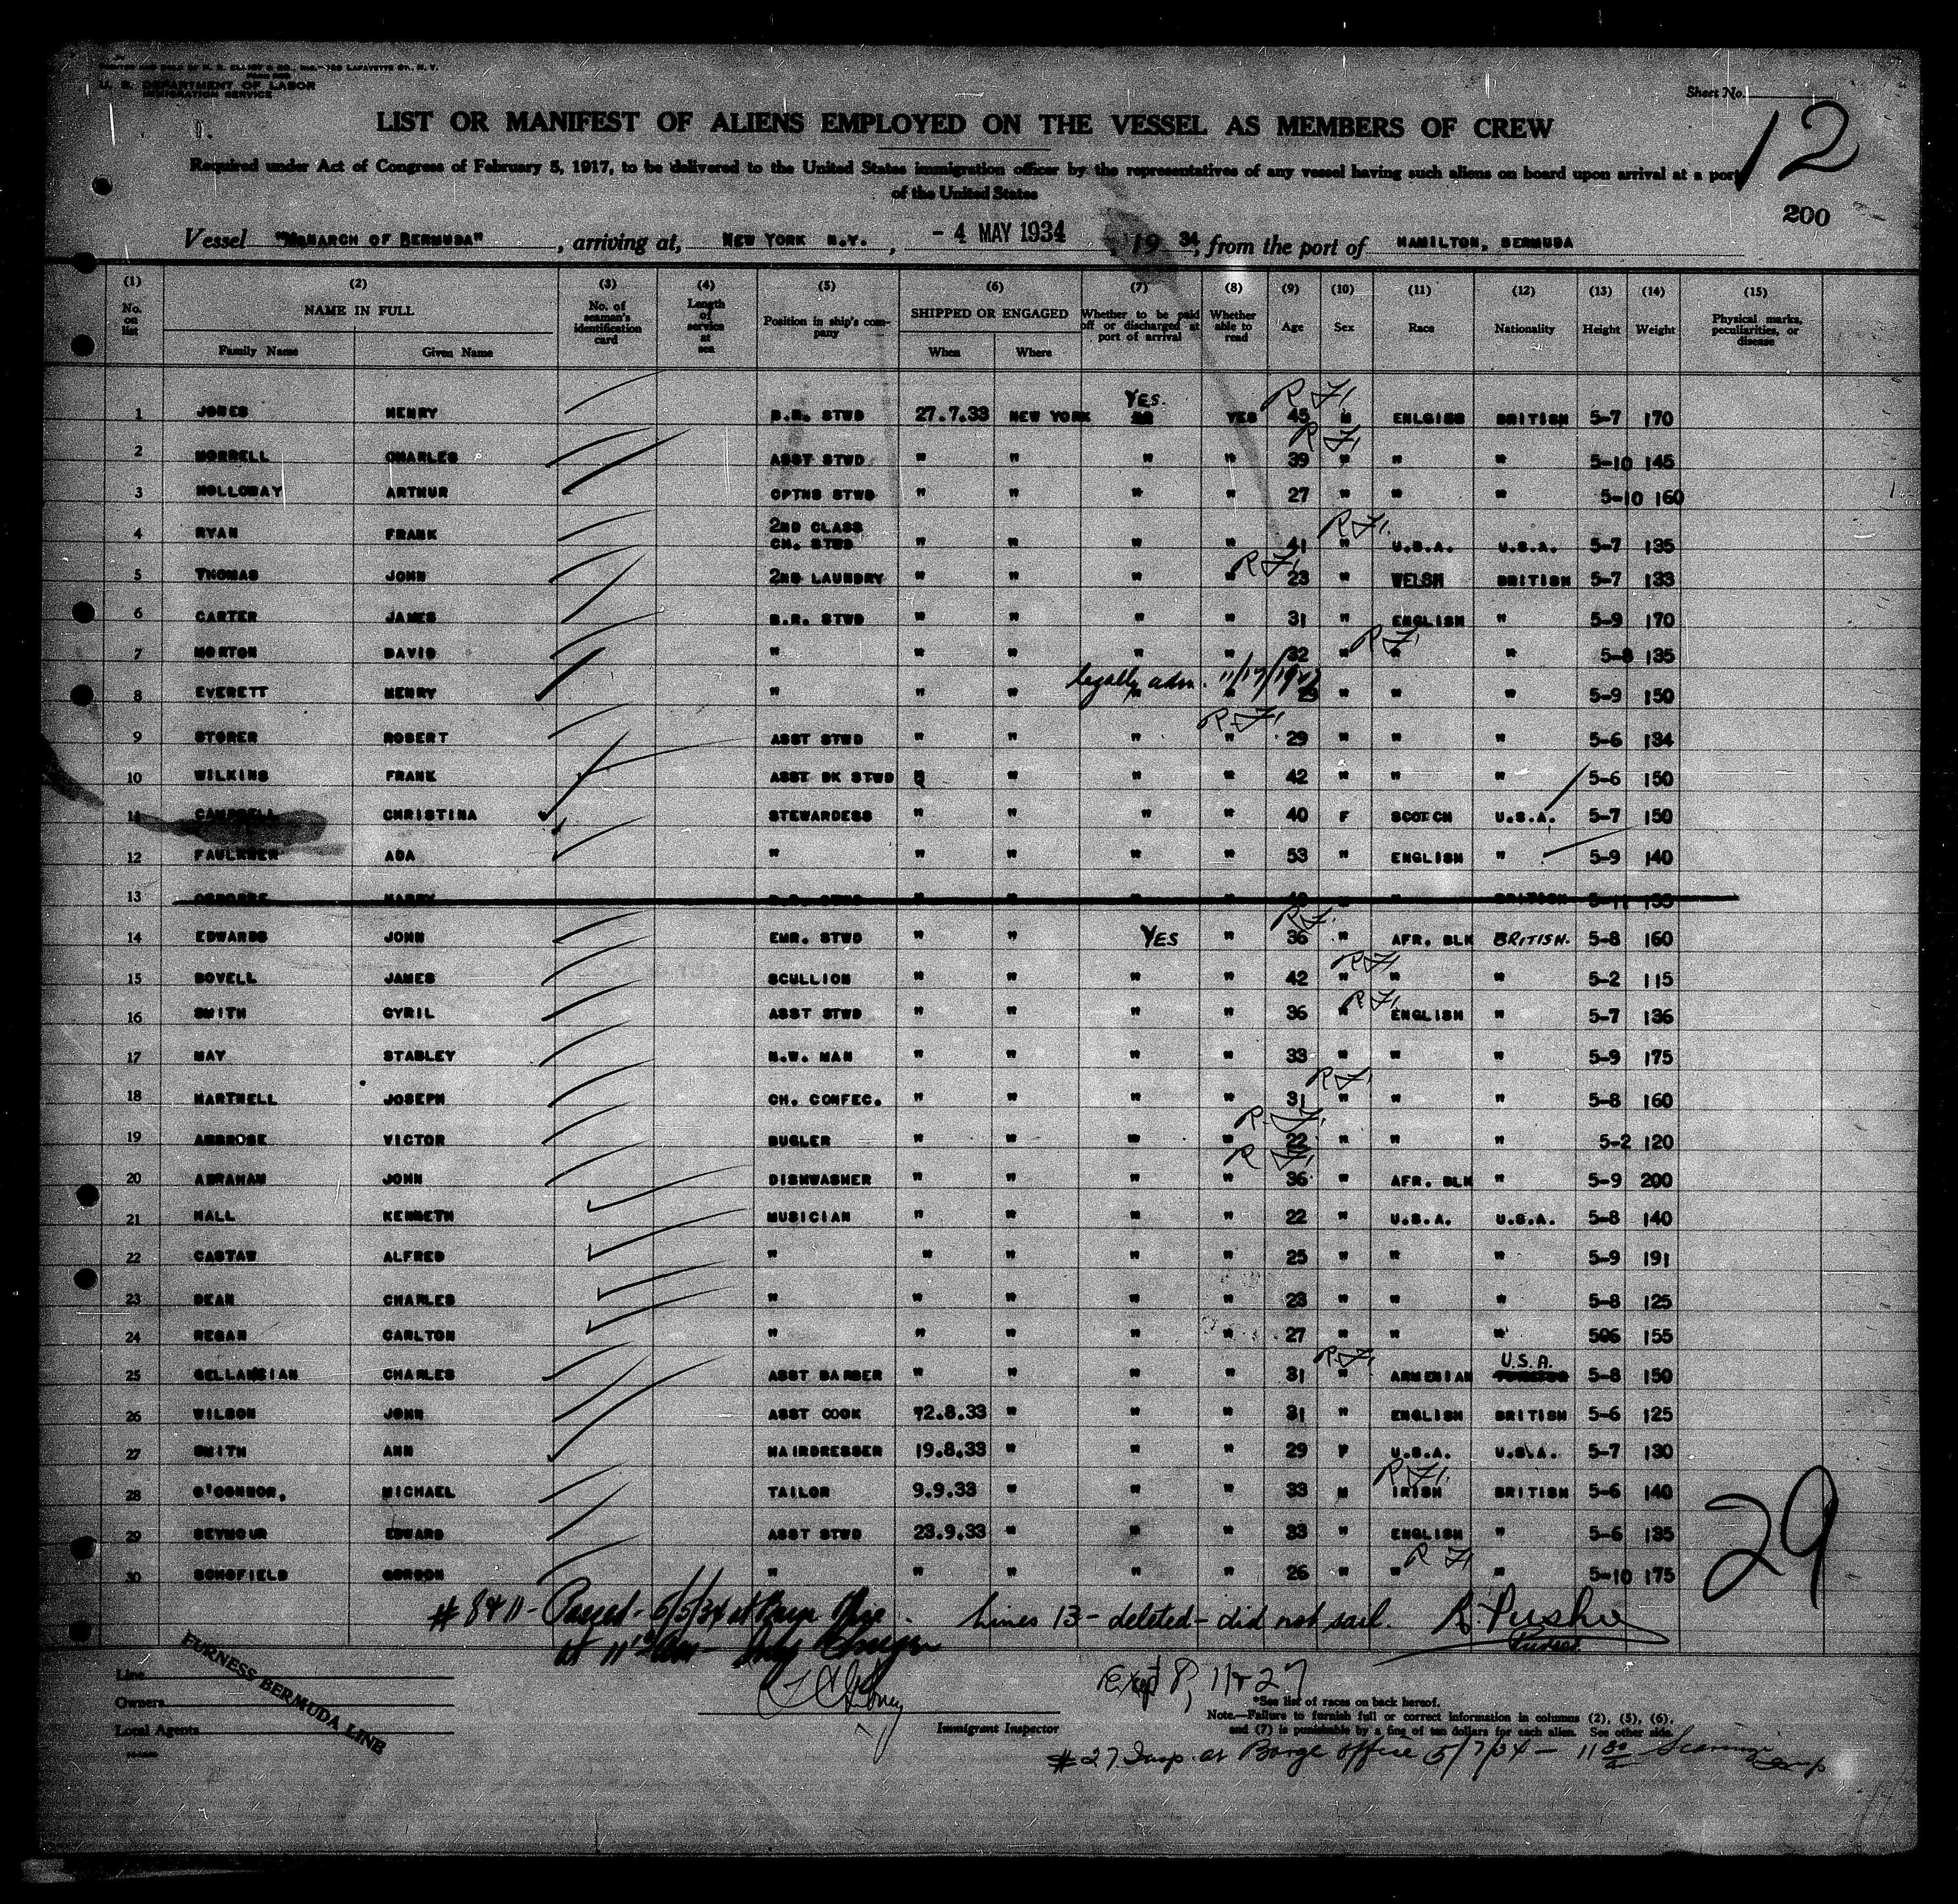 PRINTED AND SOLD BY H. R. ELLIOT & CO., INC.—129 LAFAYETTE ST., N. Y.
U. S. DEPARTMENT OF LABOR
IMMIGRATION SERVICE
Sheet No.
12
LIST OR MANIFEST OF ALIENS EMPLOYED ON THE VESSEL AS MEMBERS OF CREW
Required under Act of Congress of February 5, 1917, to be delivered to the United States immigration officer by the representatives of any vessel having such aliens on board upon arrival at a port
of the United States
200
Vessel "MONARCH OF BERMUDA", arriving at, NEW YORK N.Y., - 4 MAY 1934, 19 34, from the port of HAMILTON, BERMUDA
(1) No. on list (2) NAME IN FULL Family Name Given Name (3) No. of seaman's identification card (4) Length of service at sea (5) Position in ship's company (6) SHIPPED OR ENGAGED When Where (7) Whether to be paid off or discharged at port of arrival (8) Whether able to read (9) Age (10) Sex (11) Race (12) Nationality (13) Height (14) Weight (15) Physical marks, peculiarities, or disease
1 JONES HENRY B.R. STWD 27.7.33 NEW YORK YES. YES 45 M ENLGISH BRITISH 5-7 170
2 MORRELL CHARLES ASST STWD " " " " 39 " " " 5-10 145
3 HOLLOWAY ARTHUR CPTNS STWD " " " " 27 " " " 5-10 160
4 RYAN FRANK 2ND CLASS CH. STWD " " " " 41 " U.S.A. U.S.A. 5-7 135
5 THOMAS JOHN 2ND LAUNDRY " " " " 23 " WELSH BRITISH 5-7 133
6 CARTER JAMES B.R. STWD " " " " 31 " ENGLISH " 5-9 170
7 MORTON DAVID " " " " " 32 " " " 5-8 135
legally adm.
8 EVERETT HENRY " " " " " " " " 5-9 150
9 STORER ROBERT ASST STWD " " " " 29 " " " 5-6 134
10 WILKINS FRANK ASST DK STWD " " " " 42 " " " 5-6 150
11 CAMPBELL CHRISTINA STEWARDESS " " " " 40 F SCOTCH U.S.A. 5-7 150
12 FAULKNER ADA " " " " " 53 " ENGLISH " 5-9 140
13 OSBORNE HARRY B.R. STWD " " " " " " BRITISH 5-11
14 EDWARDS JOHN EMR. STWD " " YES " 36 " AFR. BLK BRITISH. 5-8 160
15 BOVELL JAMES SCULLION " " " " 42 " " " 5-2 115
16 SMITH CYRIL ASST STWD " " " " 36 " ENGLISH " 5-7 136
17 MAY STABLEY N.W. MAN " " " " 33 " " " 5-9 175
18 HARTNELL JOSEPH CH. CONFEC. " " " " 31 " " " 5-8 160
19 AMBROSE VICTOR BUGLER " " " " 22 " " " 5-2 120
20 ABRAHAM JOHN DISHWASHER " " " " 36 " AFR. BLK " 5-9 200
21 HALL KENNETH MUSICIAN " " " " 22 " U.S.A. U.S.A. 5-8 140
22 CASTAW ALFRED " " " " " 25 " " " 5-9 191
23 DEAN CHARLES " " " " " 23 " " " 5-8 125
24 REGAN CARLTON " " " " " 27 " " " 506 155
25 CHARLES ASST BARBER " " " " 31 " ARMENIAN U.S.A. 5-8 150
26 WILSON JOHN ASST COOK 12.8.33 " " " 31 " ENGLISH BRITISH 5-6 125
27 SMITH ANN HAIRDRESSER 19.8.33 " " " 29 F U.S.A. U.S.A. 5-7 130
28 O'CONNOR, MICHAEL TAILOR 9.9.33 " " " 33 M IRISH BRITISH 5-6 140
29 SEYMOUR EDWARD ASST STWD 23.9.33 " " " 33 " ENGLISH " 5-6 135
30 SCHOFIELD GORDON " " " " " 26 " " " 5-10 175
29
# 8411 - Passed - 5/5/34 at Barge Office. Lines 13 - deleted - did not sail.
Purser
Line
Owners
Local Agents
FURNESS BERMUDA LINE
Immigrant Inspector
Except 8, 11 & 27
*See list of races on back hereof.
Note.—Failure to furnish full or correct information in columns (2), (5), (6),
and (7) is punishable by a fine of ten dollars for each alien. See other side.
#27 Insp. at Barge office 5/7/34 - 11